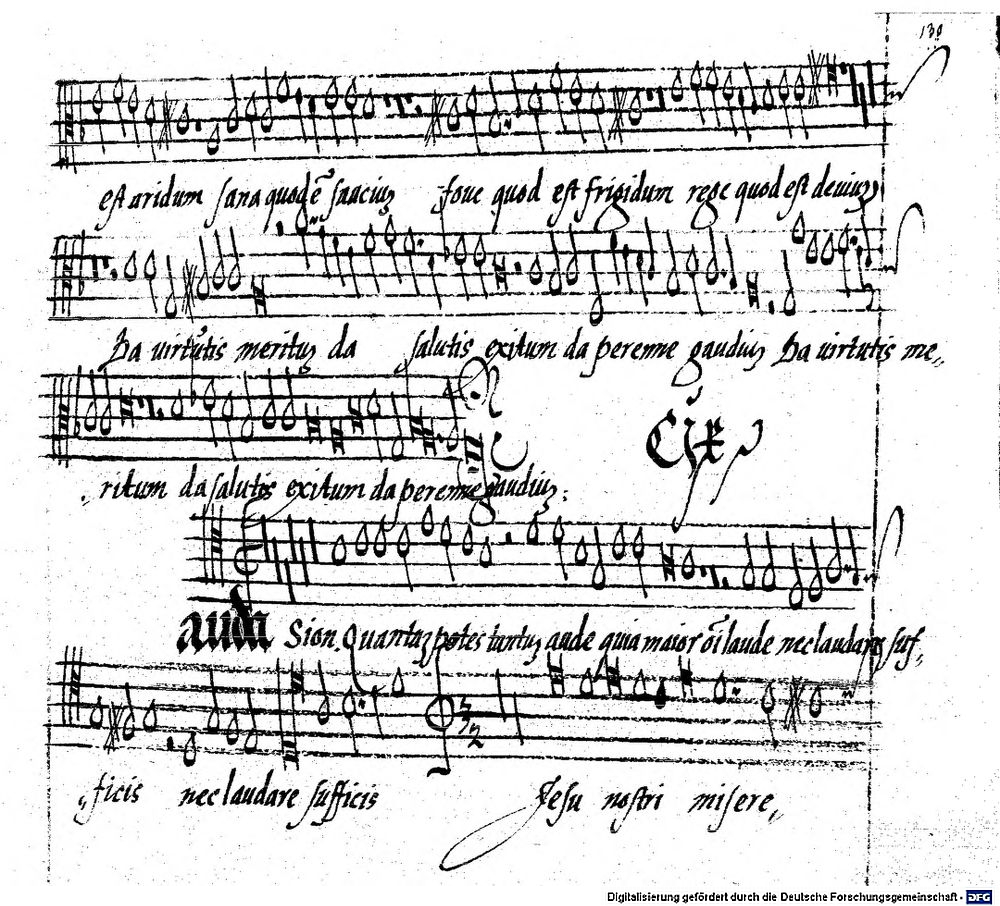 est aridum sana quod ē sauciuz fove quod est frigidum rege quod est deviuz
Da virtutis merituz da salutis exitum da perenne gaudiuz Da virtutis me„
ritum da salutis exitum da perenne gaudiuz:
auda Sion. Quantuz potes tantuz aude quia maior oi laude nec laudare suf„
„ficis nec laudare sufficis Jesu nostri misere„
Digitalisierung gefördert durch die Deutsche Forschungsgemeinschaft - DFG